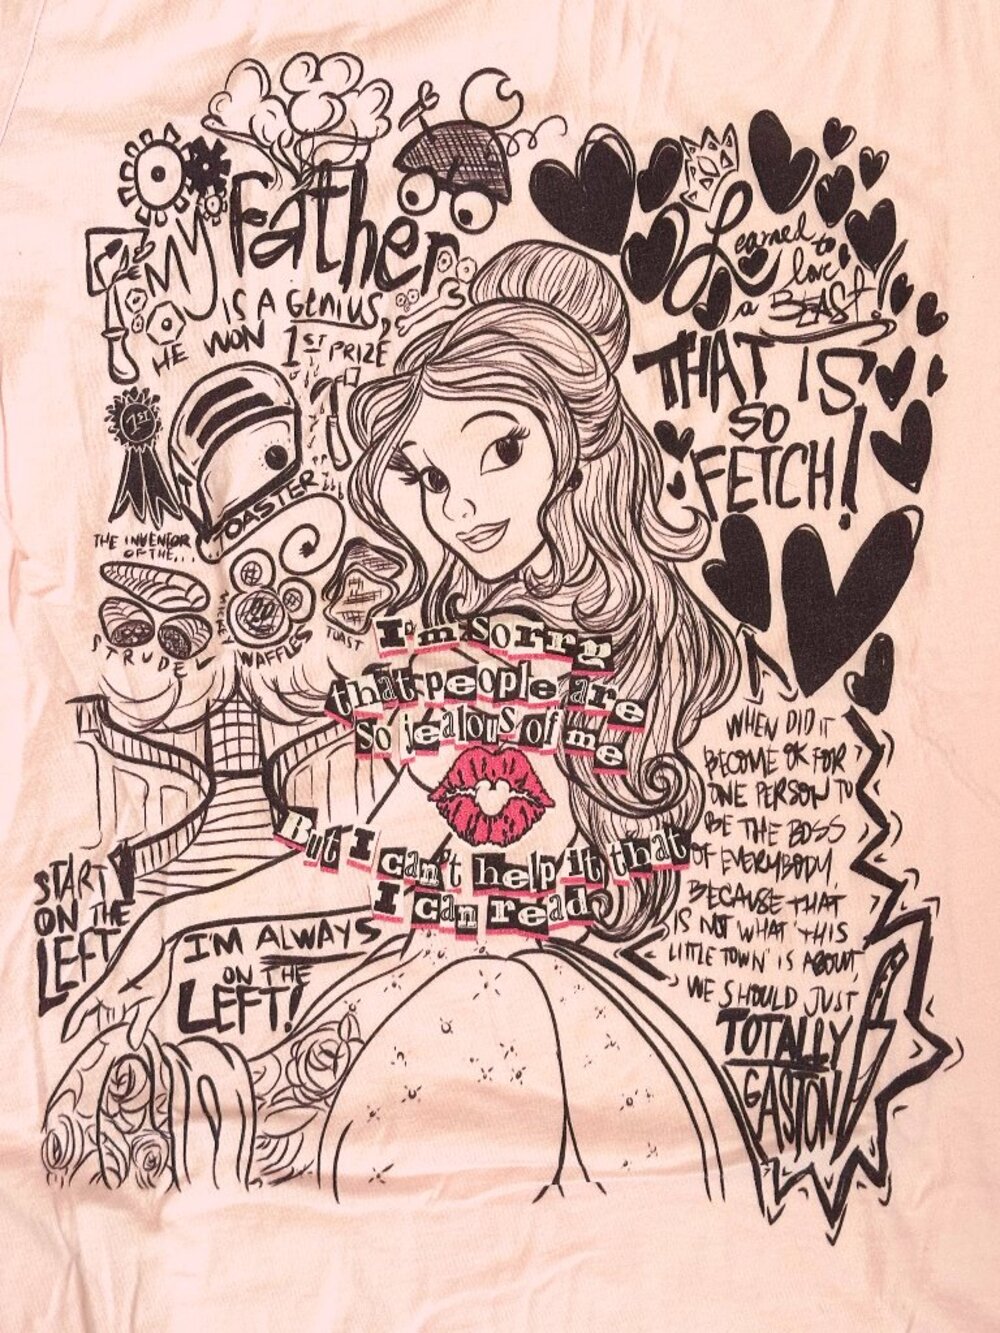 My Father
IS A GENIUS,
HE WON 1ST PRIZE
1ST
THE INVENTOR
OF THE...
TOASTER
STRUDEL
MICKEY
WAFFLES
TOAST
Learned
to
love
a BEAST!
THAT IS
SO
FETCH!
I'm sorry
that people are
so jealous of me
But I can't help it that
I can read
START
ON THE
LEFT
I'M ALWAYS
ON THE
LEFT!
WHEN DID IT
BECOME OK FOR
ONE PERSON TO
BE THE BOSS
OF EVERYBODY,
BECAUSE THAT
IS NOT WHAT THIS
LITTLE TOWN IS ABOUT,
WE SHOULD JUST
TOTALLY
GASTON